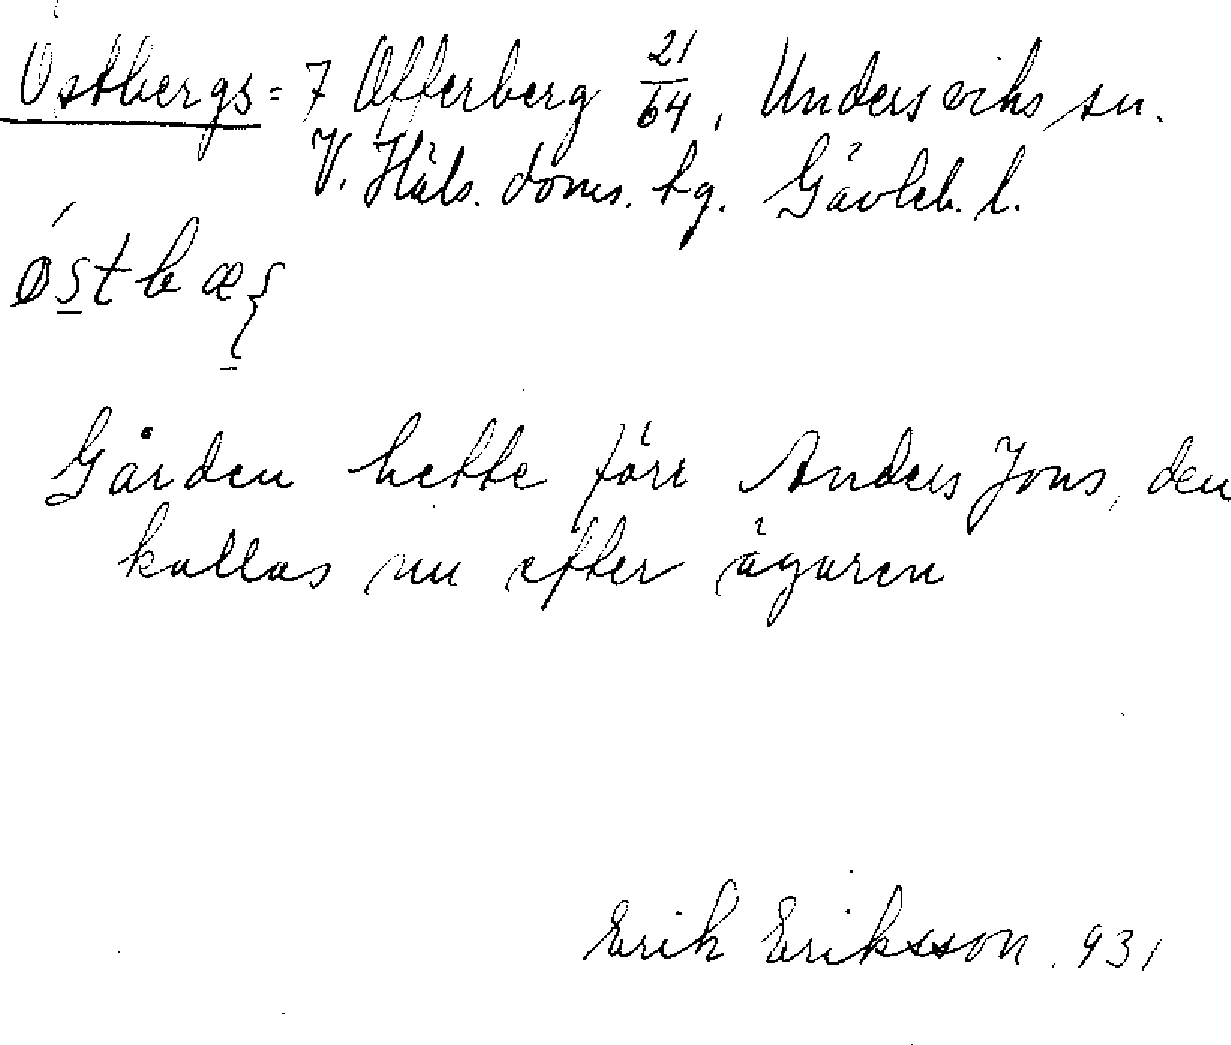 Östbergs = 7 Offerberg 21/64, Undersviks sn.
V. Häls. doms. hg. Gävleb. l.
Gården hette förr Anders Jons, den
kallas nu efter ägaren
Erik Eriksson. 931